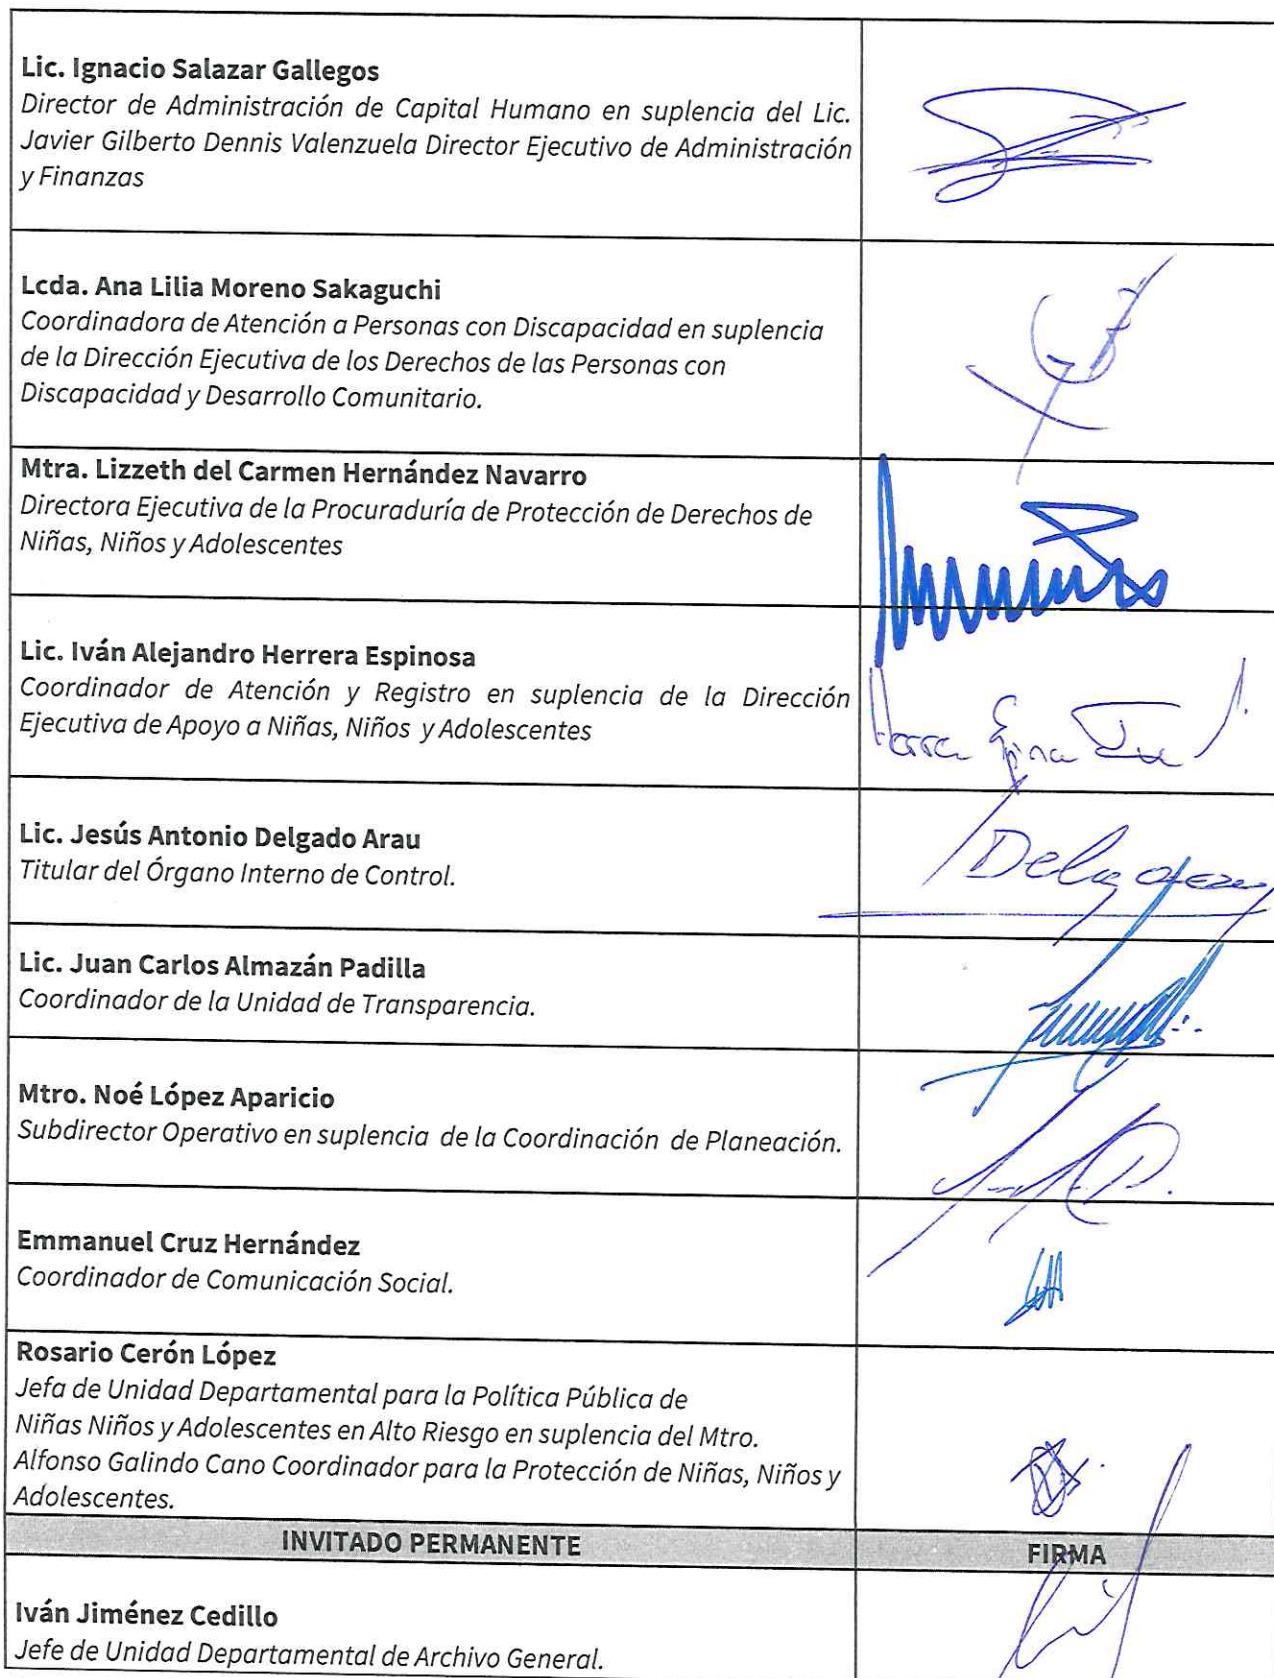 Lic. Ignacio Salazar Gallegos
Director de Administración de Capital Humano en suplencia del Lic.
Javier Gilberto Dennis Valenzuela Director Ejecutivo de Administración
y Finanzas
Lcda. Ana Lilia Moreno Sakaguchi
Coordinadora de Atención a Personas con Discapacidad en suplencia
de la Dirección Ejecutiva de los Derechos de las Personas con
Discapacidad y Desarrollo Comunitario.
Mtra. Lizzeth del Carmen Hernández Navarro
Directora Ejecutiva de la Procuraduría de Protección de Derechos de
Niñas, Niños y Adolescentes
Lic. Iván Alejandro Herrera Espinosa
Coordinador de Atención y Registro en suplencia de la Dirección
Ejecutiva de Apoyo a Niñas, Niños y Adolescentes
Lic. Jesús Antonio Delgado Arau
Titular del Órgano Interno de Control.
Lic. Juan Carlos Almazán Padilla
Coordinador de la Unidad de Transparencia.
Mtro. Noé López Aparicio
Subdirector Operativo en suplencia de la Coordinación de Planeación.
Emmanuel Cruz Hernández
Coordinador de Comunicación Social.
Rosario Cerón López
Jefa de Unidad Departamental para la Política Pública de
Niñas Niños y Adolescentes en Alto Riesgo en suplencia del Mtro.
Alfonso Galindo Cano Coordinador para la Protección de Niñas, Niños y
Adolescentes.
INVITADO PERMANENTE FIRMA
Iván Jiménez Cedillo
Jefe de Unidad Departamental de Archivo General.